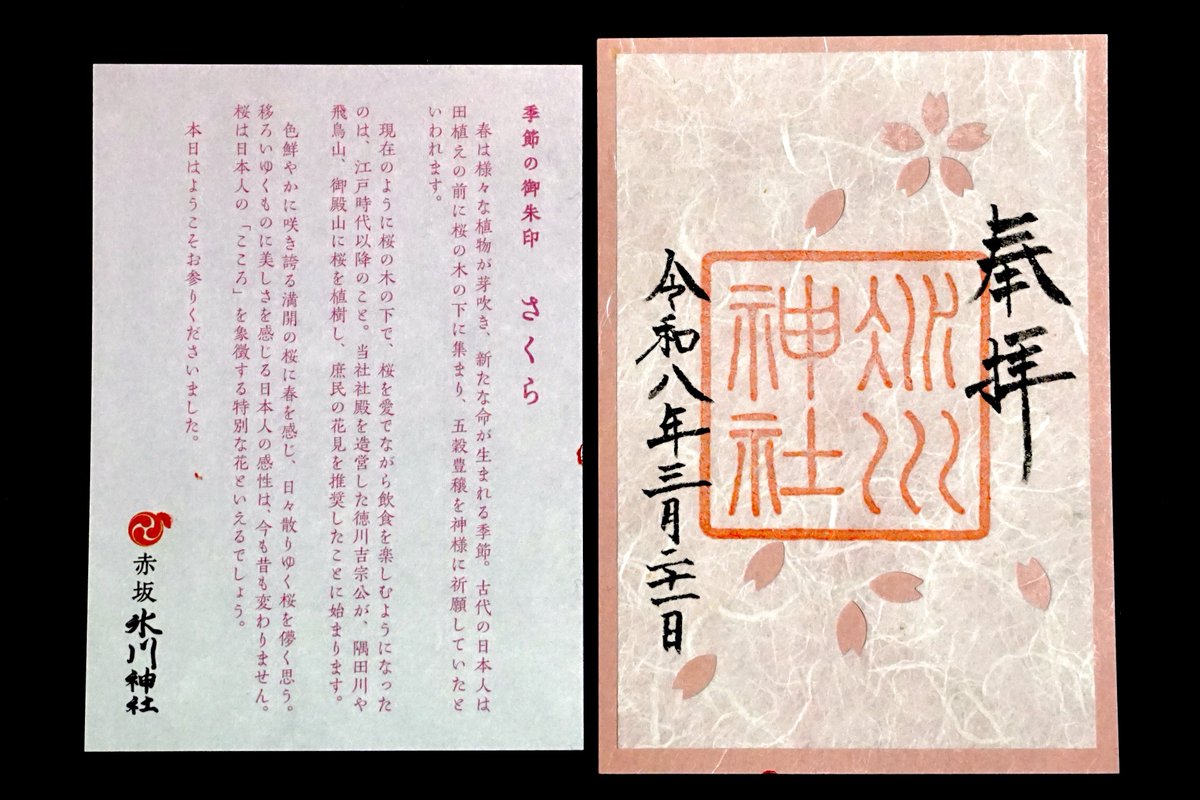 奉拝
氷川
神社
令和八年三月二十一日
季節の御朱印 さくら
春は様々な植物が芽吹き、新たな命が生まれる季節。古代の日本人は
田植えの前に桜の木の下に集まり、五穀豊穣を神様に祈願していたと
いわれます。
現在のように桜の木の下で、桜を愛でながら飲食を楽しむようになった
のは、江戸時代以降のこと。当社社殿を造営した徳川吉宗公が、隅田川や
飛鳥山、御殿山に桜を植樹し、庶民の花見を推奨したことに始まります。
色鮮やかに咲き誇る満開の桜に春を感じ、日々散りゆく桜を儚く思う。
移ろいゆくものに美しさを感じる日本人の感性は、今も昔も変わりません。
桜は日本人の「こころ」を象徴する特別な花といえるでしょう。
本日はようこそお参りくださいました。
赤坂 氷川神社